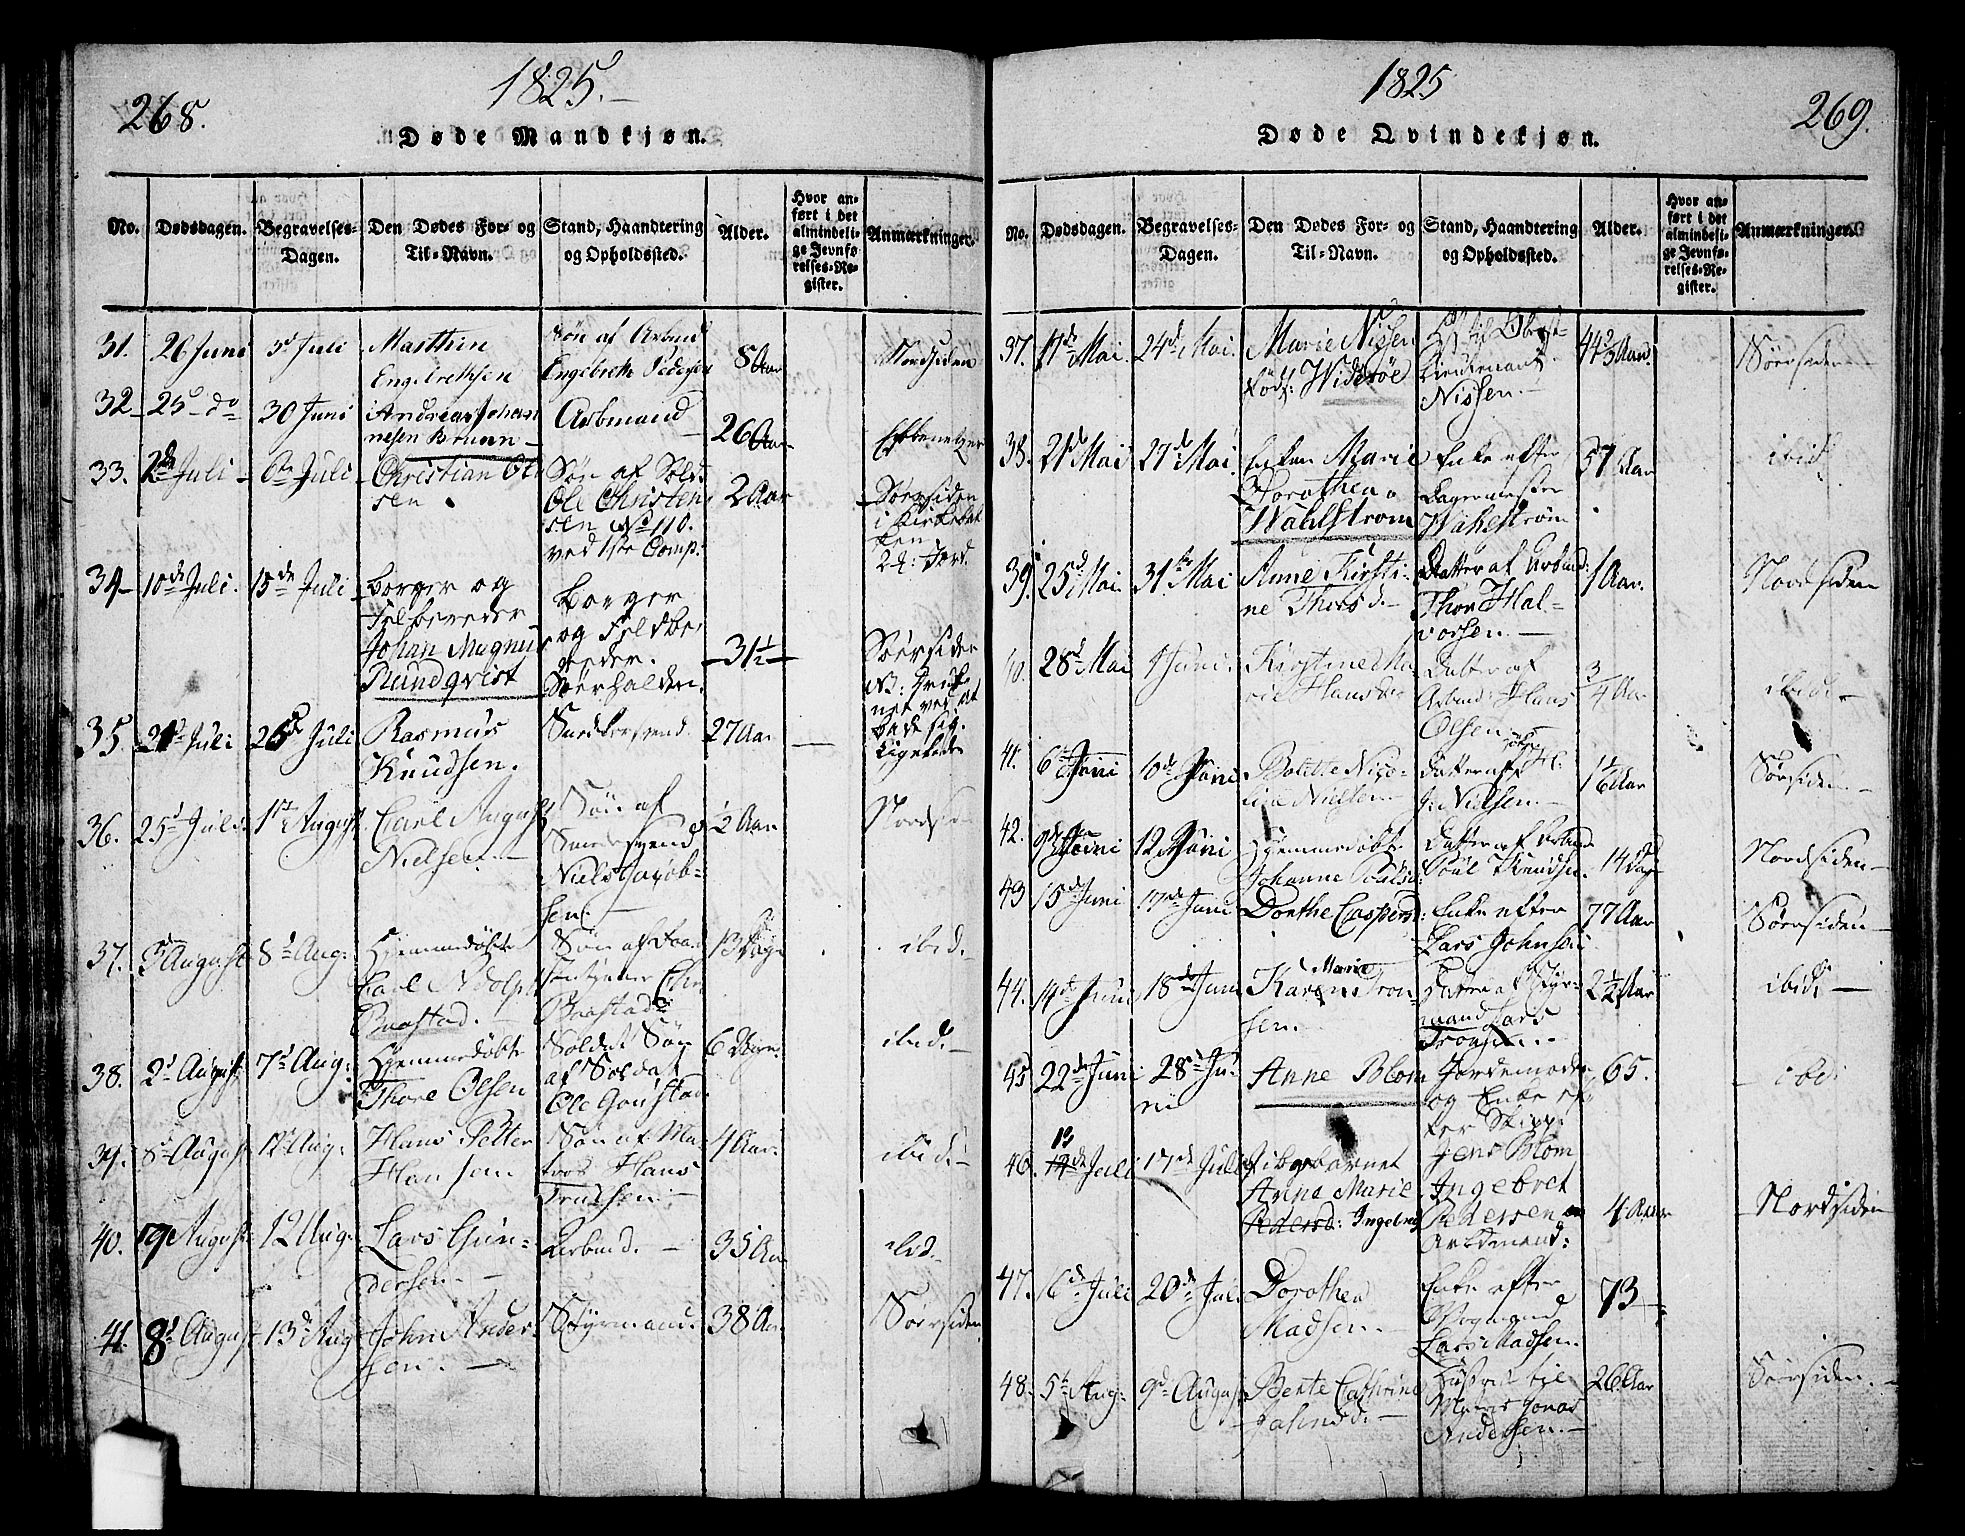 268.
1825.
Døde Mandkjøn.
No.
Dødsdagen.
Begravelses-
Dagen.
Den Dødes For- og
Til-Navn.
Stand, Haandtering
og Opholdssted.
Alder.
Hvor an-
ført i det
almindeli-
ge Jevnfø
relses-Re-
gister.
Anmærkninger.
31. 26 Juni
3d Juli
Marthin
Engebrethsen
Søn af Arbmd
Engebreth Pedersen
8 Aar
Nordsiden
32 25d do
30 Juni
Andreas Johan
nesen Bruun
Arbmand
26 Aar
33. 2de Juli
6te Juli
Christian Ol
sen
Søn af Sold:
Ole Christen
sen No 110.
ved 1ste Comp:
2 Aar
Sørsiden
i Kirkebak
ken
34 10de Juli.
15de Juli
Borger og
Feldbereder
Johan Magnus
Rundqvist
Borger
og Feldbe-
reder.
Sørhalden.
31½
Sørsiden
NB: Druk
net ved at
bade sig.
35. 21d Juli
26d Juli
Rasmus
Knudsen.
Snedkersvend.
27 Aar
Ligeledes
36. 25d Juli
1ste August
Carl August
Nielsen.
Søn af
svend
Niels Jacob-
sen.
½ Aar
Nordsi
37. 3d August
8d Aug:
Hjemmedøbte
Carl Adolph
Baastad.
Søn af
Baastad
13 Dage
ibid.
38. 2d August
7d Aug:
Hjemmedøbte
Thore Olsen
Søn
af Soldat
Ole
6
ibid.
39. 8d August
12d Aug:
Hans Petter
Hansen
Søn af Ma
tros Hans
Trulsen.
4 Aar.
ibid.
40. 9 August
12 Aug:
Lars Gun-
dersen.
Arbmd.
35 Aar
ibid.
41. 8d August
13d Aug
John Ander-
sen.
Styrmand.
38 Aar
Sørsiden
1825
269.
Døde Qvindekjøn.
No.
Dødsdagen.
Begravelses-
Dagen.
Den Dødes For- og
Til-Navn.
Stand, Haandtering
og Opholdssted.
Alder.
Hvor an-
ført i det
almindeli-
ge Jevnfø-
relses-Re-
gister.
Anmærkninger.
37. 17de Mai.
24d Mai.
Marie Nissen
født: Widerøe
til Oberst-
Lieutenant
Nissen.
44 Aar
Sørsiden
38. 21d Mai
27de Mai
Enken Marie
Dorothea
Wahlstrøm
Enke efter
Wahlstrøm
57 Aar
ibid.
39. 25d Mai.
31te Mai
Anne Kirsti-
ne Thorsd.
Datter af Arbmd:
Thor Hal-
vorsen.
1 Aar.
Nordsiden
40. 28d Mai
1 Juni.
Kirstine Ma
rie Hansd
Datter af
Arbmd: Hans
Olsen
3/4 Aar
ibid.
41. 6te Juni
10de Juni
Bolette Nico-
line Nielsen.
Datter af
J: Nielsen.
Aar
Sørsiden.
42. 9de Juni
12 Juni
Hjemmedøbte
Johanne
Datter af Arbmd
Poul Knudsen.
14 Dage
Nordsiden
43 15de Juni
17de Juni
Dorthe Caspersd:
Enke efter
Lars Johnsen
77 Aar
Sørsiden
44. 14de Juni
18de Juni
Karen Marie Tron-
sen.
Datter af Styr-
mand Lars
Tronsen.
2½ Aar
ibid.
45 22de Juni
28d Ju-
nii
Anne Blom
Jordemoder
og Enke ef
ter Skipp:
Jens Blom
65.
ibid
46. 13 12de Juli
17de Juli
Anne Marie
Pedersd: Ingebret
Ingebret
Pedersen
Arbdmand:
4 Aar
Nordsiden
47. 16d Juli
20de Juli
Dorothea
Madsen.
Enke efter
Vognmand
Lars Madsen.
73
48. 5te Aug:
9d August
Berte Cathrine
Hustru til
Jonas
Andersen.
26 Aar
Sørsiden.